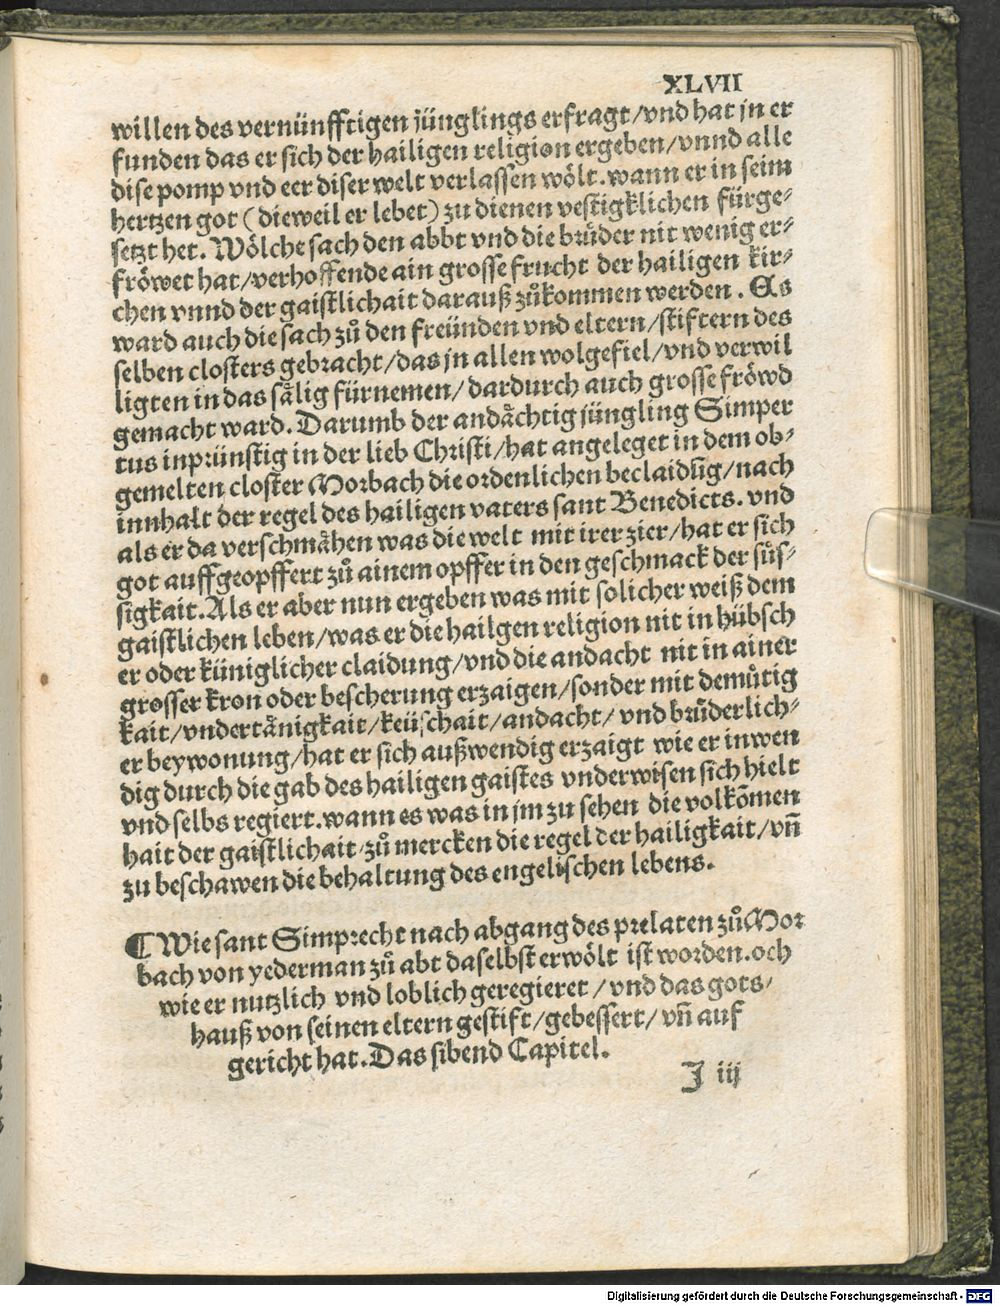 XLVII
willen des vernünfftigen jünglings erfragt/vnd hat jn er
funden das er sich der hailigen religion ergeben/vnnd alle
dise pomp vnd eer diser welt verlassen wölt.wann er in seim
hertzen got (dieweil er lebet) zu dienen vestigklichen fürge⸗
setzt het. Wölche sach den abbt vnd die brůder nit wenig er⸗
fröwet hat/verhoffende ain grosse frucht der hailigen kir⸗
chen vnnd der gaistlichait darauß zůkommen werden. Es
ward auch die sach zů den freünden vnd eltern/stiftern des
selben closters gebracht/das jn allen wolgefiel/vnd verwil
ligten in das sålig fürnemen/dardurch auch grosse fröwd
gemacht ward. Darumb der andächtig jüngling Simper
tus inprünstig in der lieb Christi/hat angeleget in dem ob⸗
gemelten closter Morbach die ordenlichen beclaidūg/nach
innhalt der regel des hailigen vaters sant Benedicts. vnd
als er da verschmähen was die welt mit irer zier/hat er sich
got auffgeopffert zů ainem opffer in den geschmack der sůs⸗
sigkait. Als er aber nun ergeben was mit solicher weiß dem
gaistlichen leben/was er die hailgen religion nit in hübsch
er oder küniglicher claidung/vnd die andacht nit in ainer
grosser kron oder bescherung erzaigen/sonder mit demůtig
kait/vndertänigkait/keüschait/andacht/vnd brůderlich⸗
er beywonung/hat er sich außwendig erzaigt wie er inwen
dig durch die gab des hailigen gaistes vnderwisen sich hielt
vnd selbs regiert.wann es was in jm zu sehen die volkōmen
hait der gaistlichait/zů mercken die regel der hailigkait/vñ
zu beschawen die behaltung des engelischen lebens.
¶ Wie sant Simprecht nach abgang des prelaten zů Mor
bach von yederman zů abt daselbst erwölt ist worden.och
wie er nutzlich vnd loblich geregieret/vnd das gots⸗
hauß von seinen eltern gestift/gebessert/vñ auf
gericht hat. Das sibend Capitel.
J iij
Digitalisierung gefördert durch die Deutsche Forschungsgemeinschaft - DFG